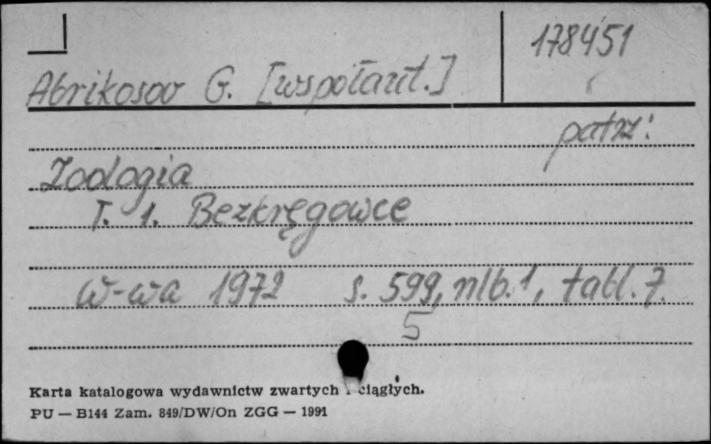 178451
Abrikosov G. [współaut.]
patrz:
Zoologia
T. 1. Bezkręgowce
W-wa 1972 s. 599, nlb. 1, tabl. 7.
5
Karta katalogowa wydawnictw zwartych i ciągłych.
PU — B144 Zam. 849/DW/On ZGG — 1991